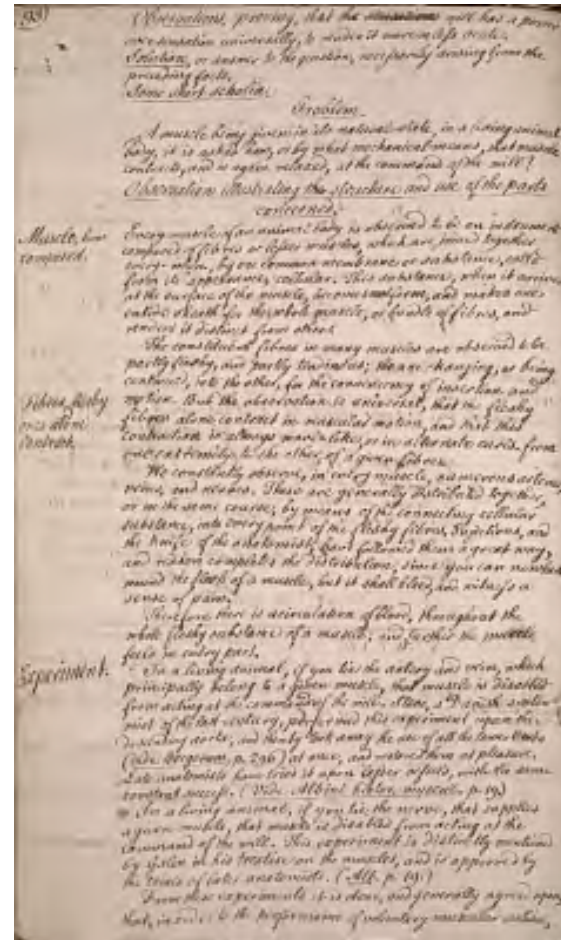 (93)
Observations, proving, that the will has a power
over sensation universally, to render it more or less acute.
Solution, or answer to the question, necessarily arising from the
preceding facts.
Some short scholia.
Problem.
A muscle being given in its natural state, in a living animal
body, it is asked how, or by what mechanical means, that muscle
contracts, and is again relaxed, at the command of the will?
Observation illustrating the structure and use of the parts
concerned.
Muscle, how
composed.
Every muscle of an animal body is observed to be an instrument
composed of fibres or lesser muscles, which are joined together
every where, by one common membrane or substance, called
from its appearance, cellular. This substance, when it arrives
at the surface of the muscle, becomes uniform, and makes one
entire sheath for the whole muscle, or bundle of fibres, and
renders it distinct from others.
The constituent fibres in many muscles are observed to be
partly fleshy, and partly tendinous; the one changing, or being
continued, into the other, for the conveniency of insertion and
motion. But the observation is universal, that the fleshy
Fibres, fleshy
ones alone
contract.
fibres alone contract in muscular motion, and that this
contraction is always from
one extremity to the other of a given fibre.
We constantly observe, in every muscle, numerous arteries,
veins, and nerves. These are generally distributed together,
or in the same course, by means of the connecting cellular
substance, into every point of the fleshy fibres. Injections, and
the knife of the anatomist, have followed them a great way,
and reason compleats the distribution, since you can nowhere
wound the flesh of a muscle, but it shall bleed, and witness a
sense of pain.
Therefore there is a circulation of blood, throughout the
whole fleshy substance of a muscle; and farther the muscle
feels in every part.
Experiment.
In a living animal, if you tie the artery and vein, which
principally belong to a given muscle, that muscle is disabled
from acting at the command of the will. Steno, a Danish
of the last century, performed this experiment upon the
descending aorta, and thereby took away the use of all the lower limbs
(vide p. 296) at once, and restored them at pleasure.
Late anatomists have tried it upon lesser vessels, with the same
constant success. (Vide Albini p. 19)
In a living animal, if you tie the nerve, that supplies
a given muscle, that muscle is disabled from acting at the
command of the will. This experiment is distinctly mentioned
by Galen in his treatise on the muscles, and is approved by
the trials of later anatomists. (Alb. p. 19.)
From these experiments it is clear, and generally agreed upon,
that, in order to the performance of voluntary muscular action,